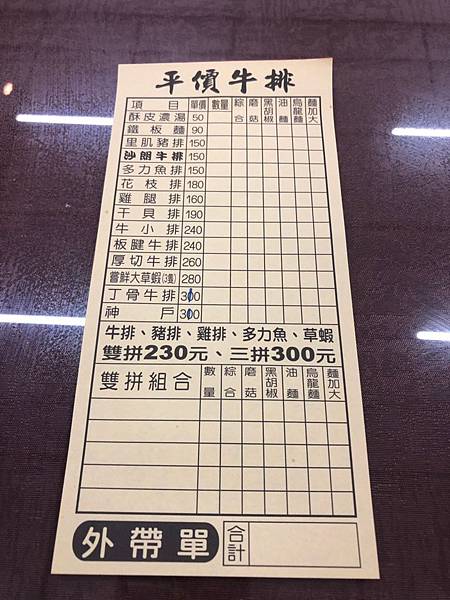 平價牛排
項目 單價 數量 綜合 磨菇 黑胡椒 油麵 烏龍麵 麵加大
酥皮濃湯 50
鐵板麵 90
里肌豬排 150
沙朗牛排 150
多力魚排 150
花枝排 180
雞腿排 160
干貝排 190
牛小排 240
板腱牛排 240
厚切牛排 260
嘗鮮大草蝦(3隻) 280
丁骨牛排 300
神戶 300
牛排、豬排、雞排、多力魚、草蝦
雙拼230元、三拼300元
雙拼組合 數量 綜合 磨菇 黑胡椒 油麵 烏龍麵 麵加大
外帶單 合計